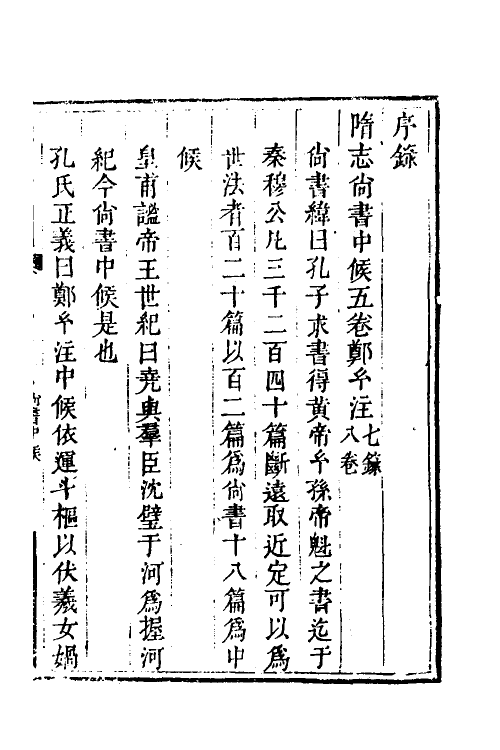 序錄
隋志尚書中候五卷鄭𤣥注七錄八卷
尚書緯曰孔子求書得黃帝𤣥孫帝魁之書迄于
秦穆公凡三千二百四十篇斷遠取近定可以爲
世法者百二十篇以百二篇爲尚書十八篇爲中
候
皇甫謐帝王世紀曰堯與羣臣沈璧于河爲握河
紀今尚書中候是也
孔氏正義曰鄭𤣥注中候依運斗樞以伏羲女媧
尚書中候